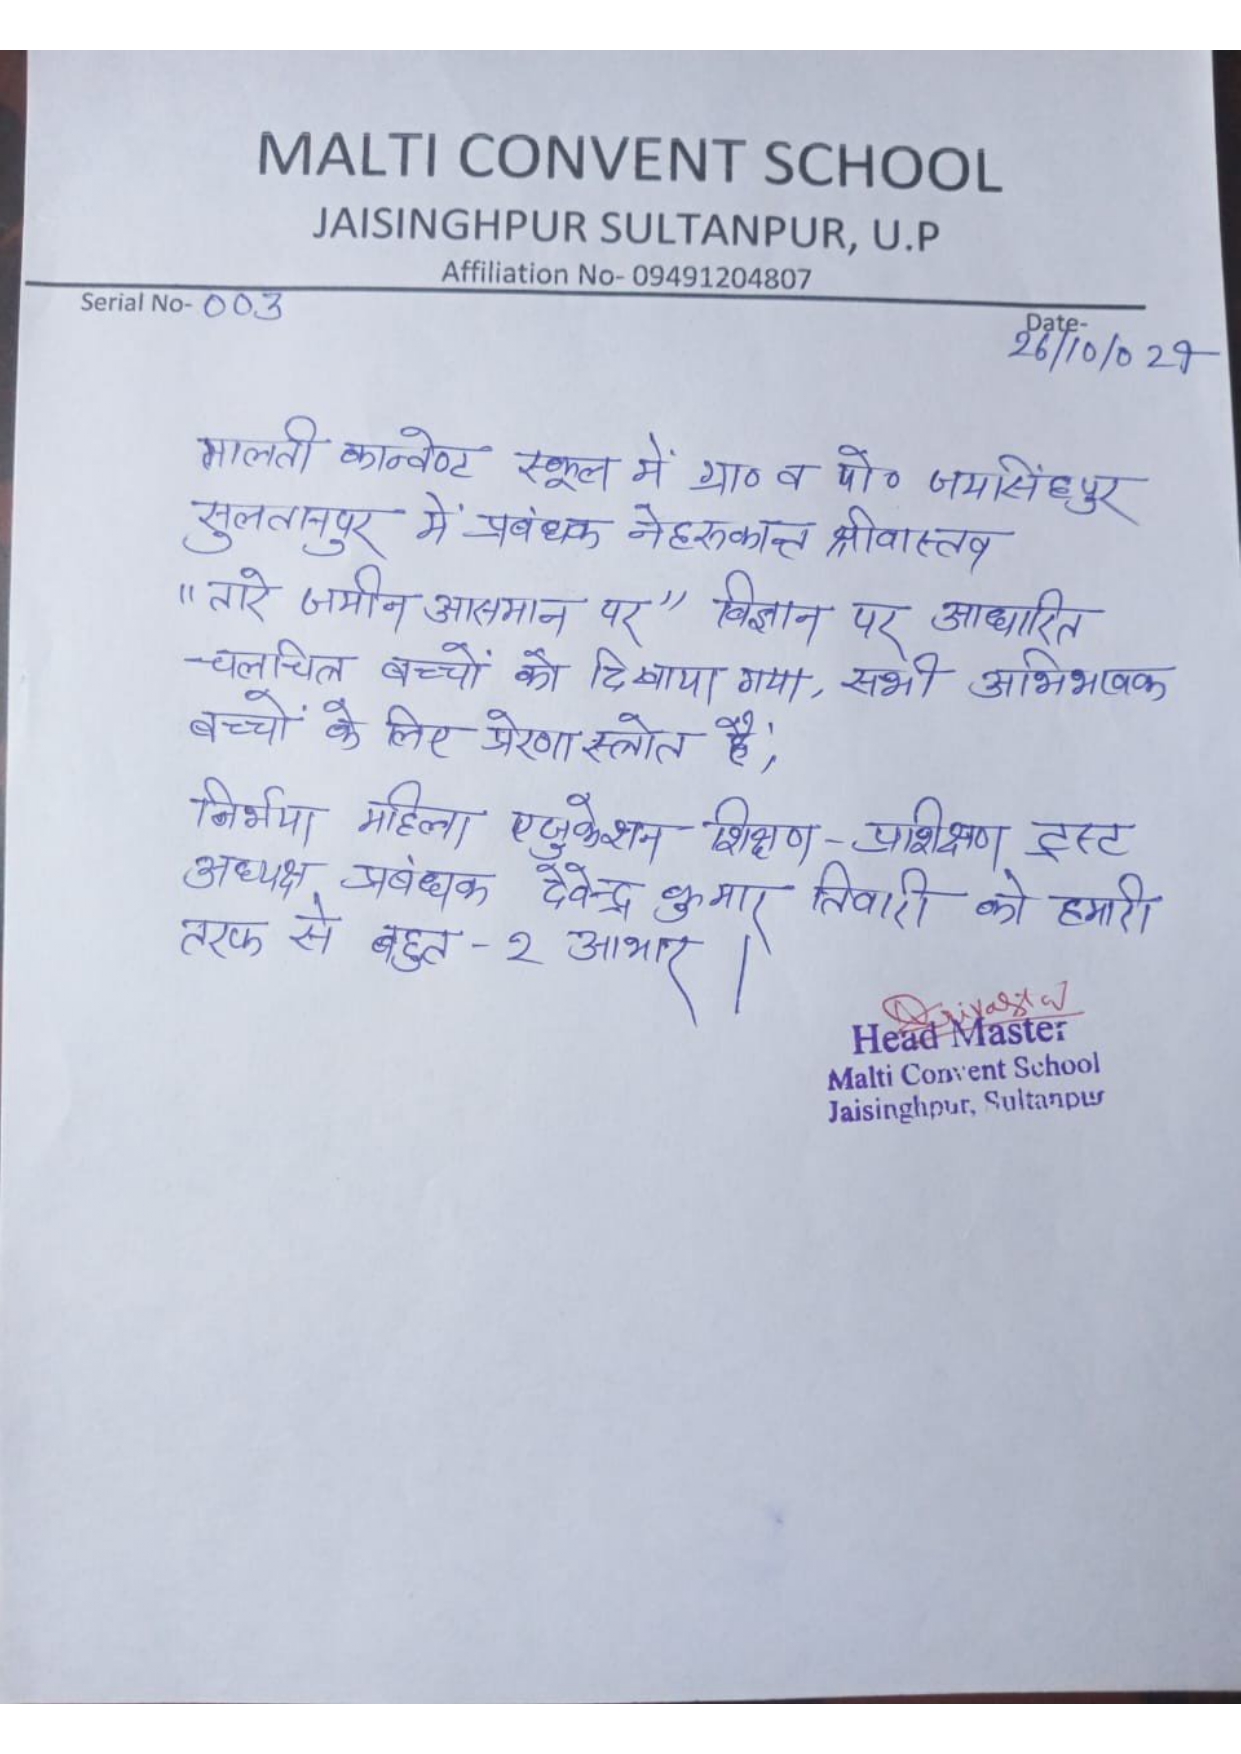 MALTI CONVENT SCHOOL
JAISINGHPUR SULTANPUR, U.P
Affiliation No- 09491204807
Serial No- 003
Date-
26/10/0
मालती कान्वेण्ट स्कूल में ग्रा० व पो० जयसिंहपुर
सुलतानपुर में प्रबंधक नेहरुकान्त श्रीवास्तव
"तारे जमीन आसमान पर" विज्ञान पर आधारित
चलचित्र बच्चों को दिखाया गया, सभी अभिभावक
बच्चों के लिए प्रेरणा स्त्रोत है,
निर्भया महिला एजुकेशन शिक्षण-प्रशिक्षण ट्रस्ट
अध्यक्ष प्रबंधक देवेन्द्र कुमार तिवारी को हमारी
तरफ से बहुत-२ आभार |
Head Master
Malti Convent School
Jaisinghpur, Sultanpur